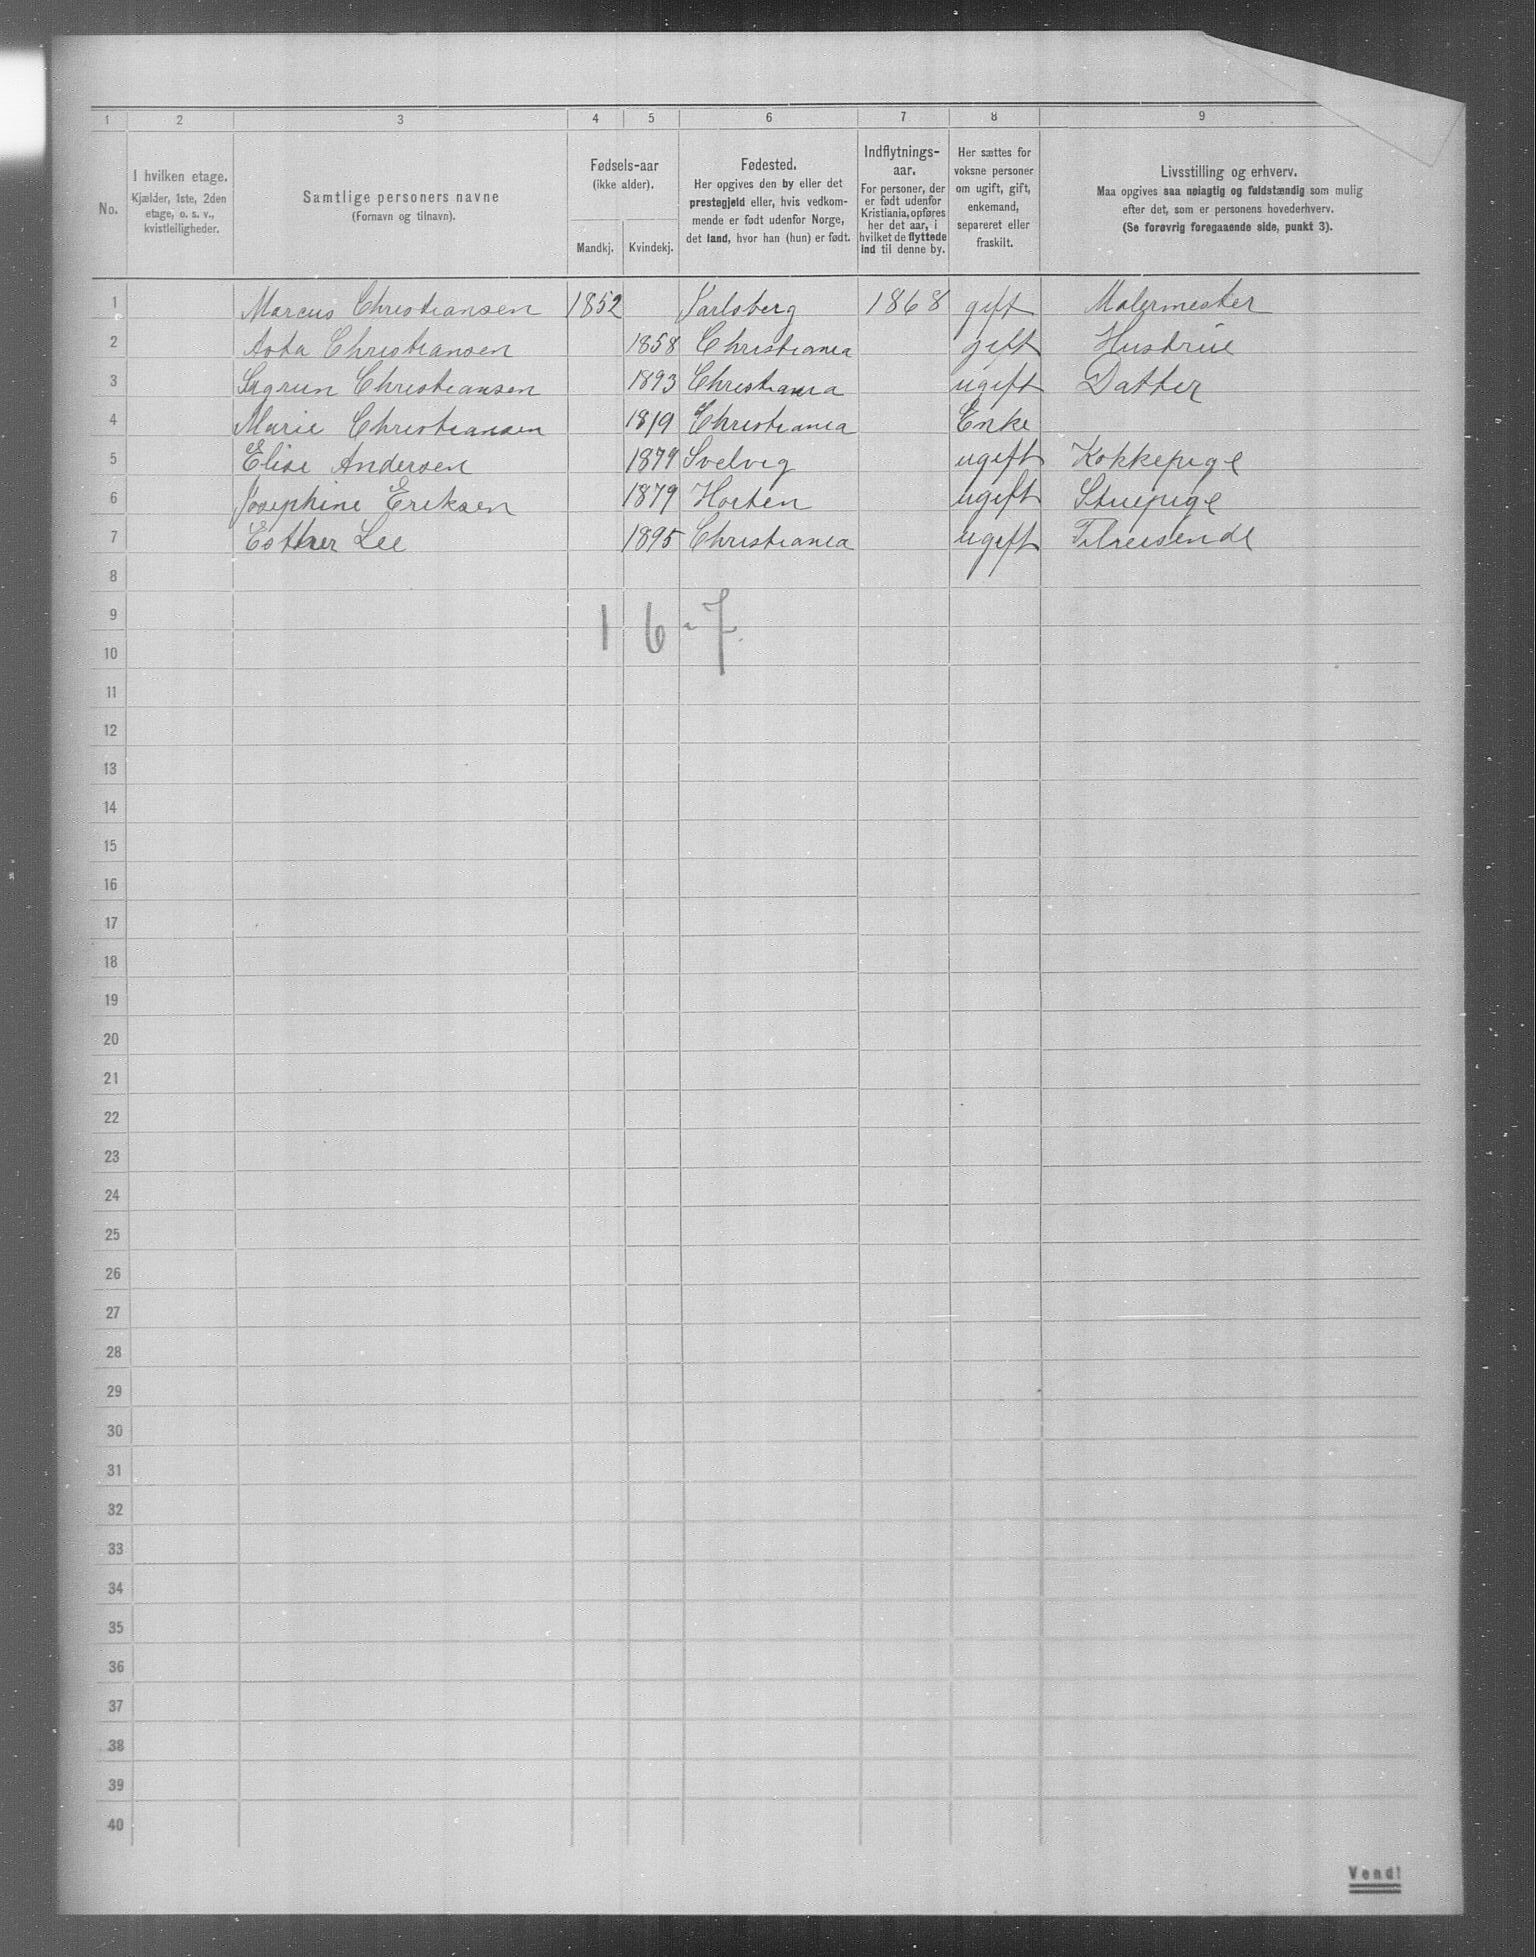 1 2 3 4 5 6 7 8 9
No.
I hvilken etage.
Kjælder, 1ste, 2den
etage, o. s. v.,
kvistleiligheder.
Samtlige personers navne
(Fornavn og tilnavn).
Fødsels-aar
(ikke alder).
Mandkj. Kvindekj.
Fødested.
Her opgives den by eller det
prestegjeld eller, hvis vedkom-
mende er født udenfor Norge,
det land, hvor han (hun) er født.
Indflytnings-
aar.
For personer, der
er født udenfor
Kristiania, opføres
her det aar, i
hvilket de flyttede
ind til denne by.
Her sættes for
voksne personer
om ugift, gift,
enkemand,
separeret eller
fraskilt.
Livsstilling og erhverv.
Maa opgives saa nøiagtig og fuldstændig som mulig
efter det, som er personens hovederhverv.
(Se forøvrig foregaaende side, punkt 3).
1 Marcus Christiansen 1852 Jarlsberg 1868 gift Malermester
2 Asta Christiansen 1858 Christiania gift Hustrue
3 Sigrun Christiansen 1893 Christiania ugift Datter
4 Marie Christiansen 1819 Christiania Enke
5 Elise Andersen 1879 Svelvig ugift Kokkepige
6 Josephine Eriksen 1879 Horten ugift Stuepige
7 Esther Lee 1895 Christiania ugift Tilreisende
8
9 1 6 - 7.
10
11
12
13
14
15
16
17
18
19
20
21
22
23
24
25
26
27
28
29
30
31
32
33
34
35
36
37
38
39
40
Vend!